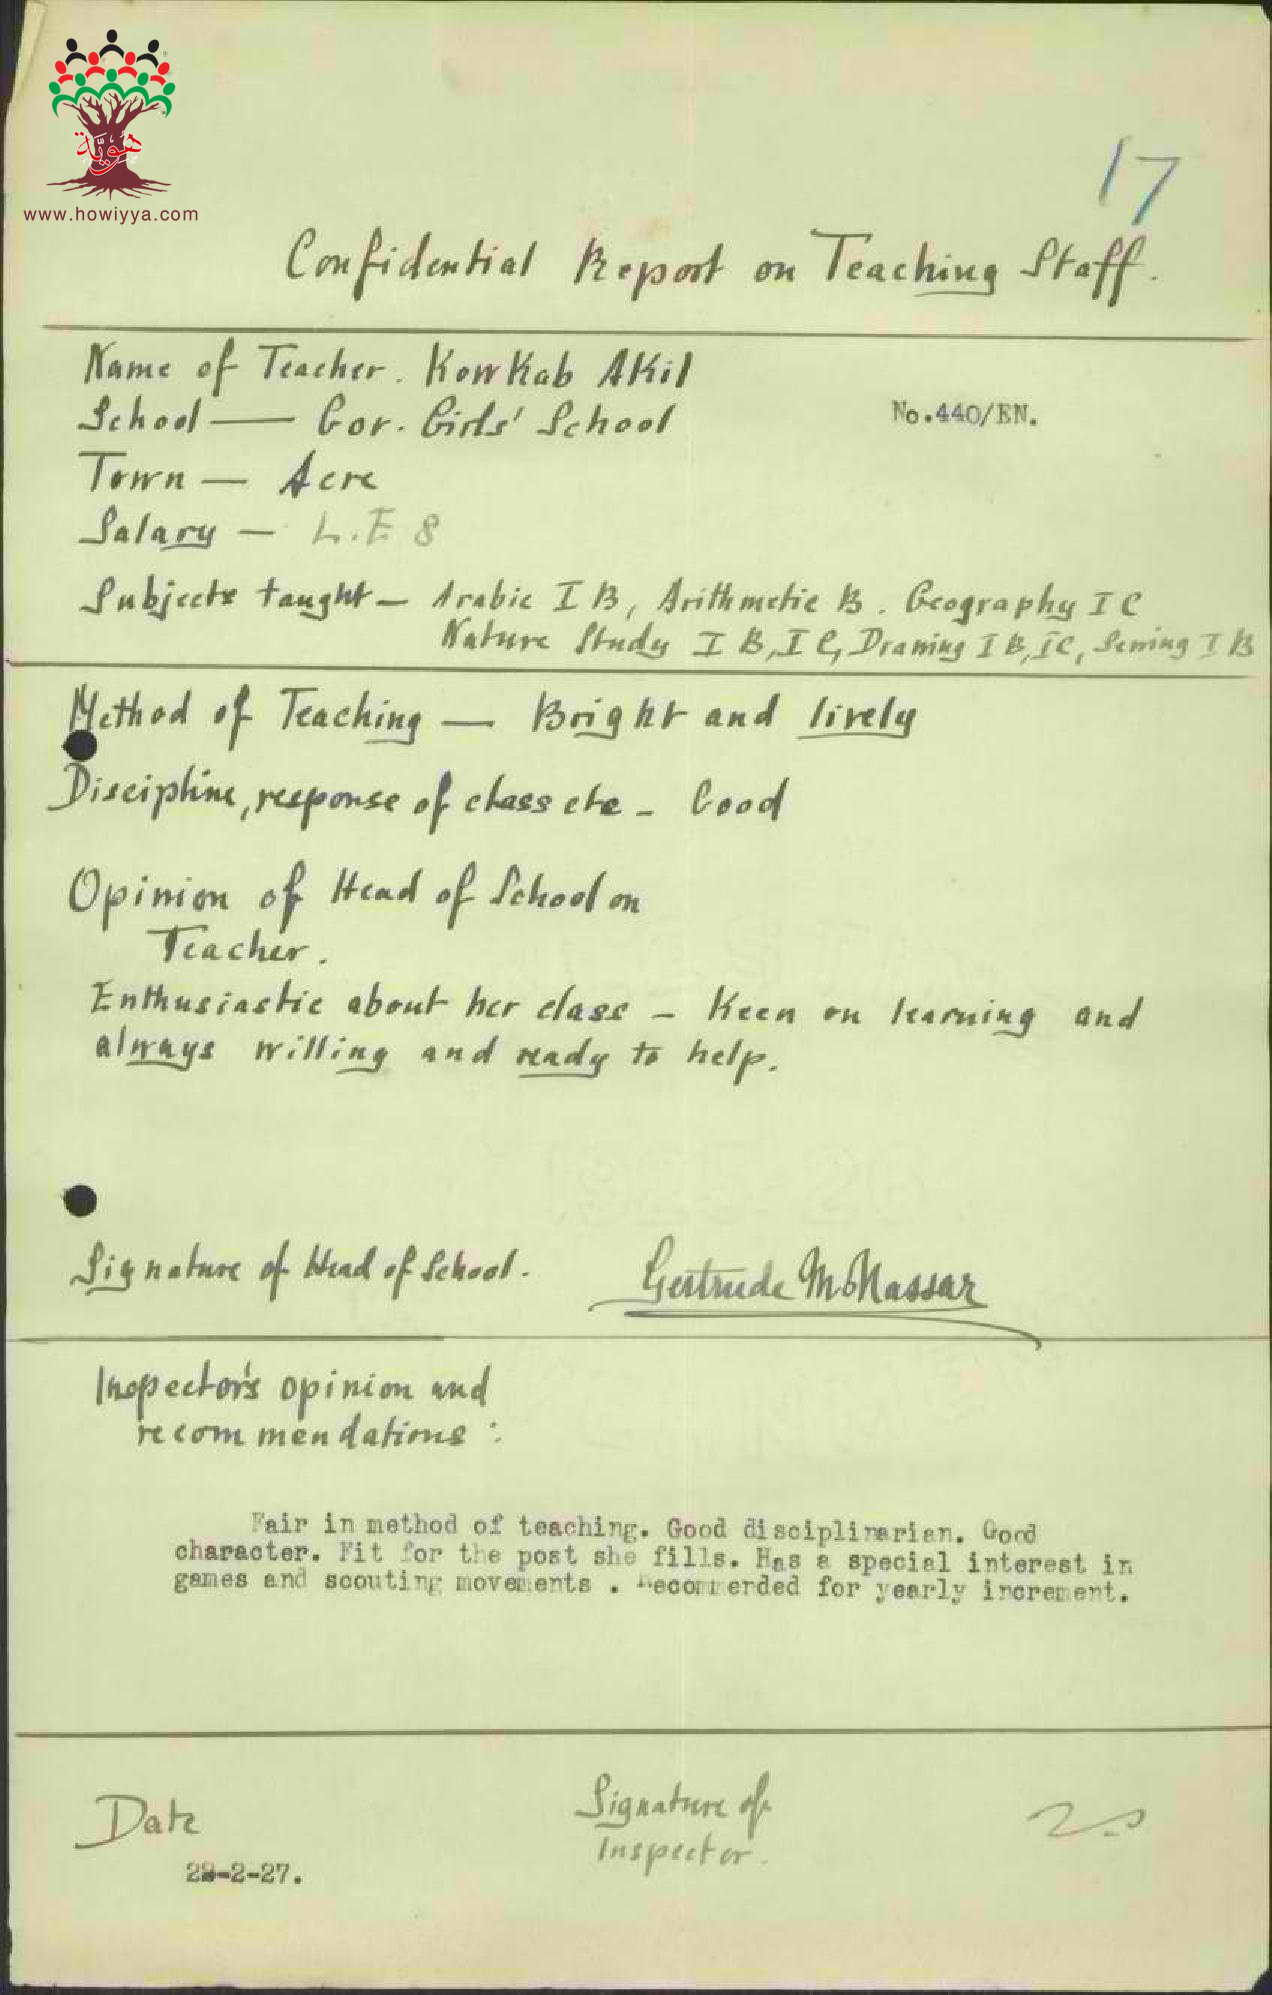 هويّة
www.howiyya.com
17
Confidential Report on Teaching Staff.
Name of Teacher. Kowkab Akil
School — Gov. Girls' School
No.440/EN.
Town — Acre
Salary — L.E 8
Subjects taught — Arabic I B, Arithmetic B. Geography I C
Nature Study I B, I C, Drawing I B, I C, Sewing I B
Method of Teaching — Bright and lively
Discipline, response of class etc - Good
Opinion of Head of School on
Teacher.
Enthusiastic about her class - Keen on learning and
always willing and ready to help.
Signature of Head of School.
Gertrude Nassar
Inspector's opinion and
recommendations :
Fair in method of teaching. Good disciplinarian. Good
character. Fit for the post she fills. Has a special interest in
games and scouting movements . Recommended for yearly increment.
Date
Signature of
Inspector.
-2-27.